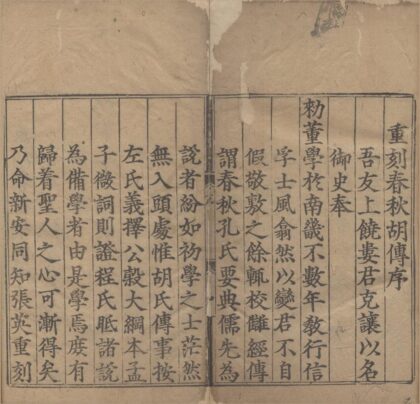 重刻春秋胡傳序
吾友上饒婁君克讓以名
御史奉
勑董學於南畿不數年教行信
孚士風翕然以變君不自
假敬敷之餘輒校讎經傳
謂春秋孔氏要典儒先為
說者紛如初學之士茫然
無入頭處惟胡氏傳事按
左氏義擇公穀大綱本孟
子微詞則證程氏眡諸說
為備學者由是學焉庶有
歸着聖人之心可漸得矣
乃命新安同知張英重刻